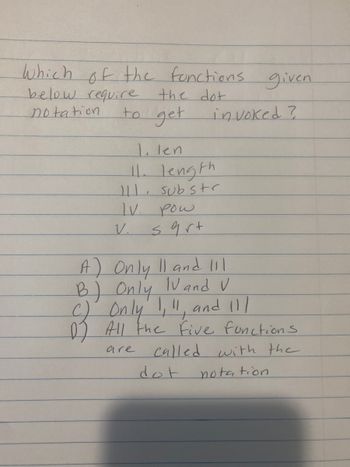 Which of the functions given
below require the dot
notation to get invoked?
I. len
II. length
III. substr
IV pow
V. sqrt
A) Only II and III
B) Only IV and V
C) Only I, II, and III
D) All the five functions
are called with the
dot notation